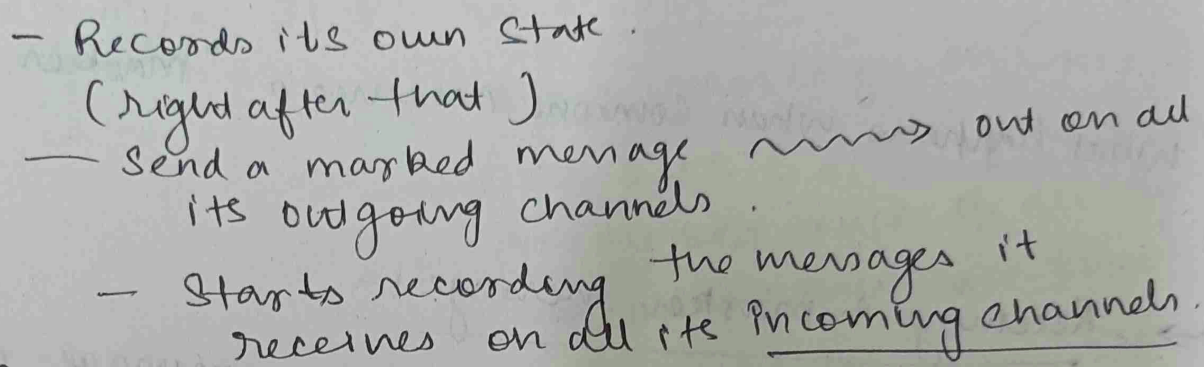 - Records its own state.
(right after that)
- Send a marked message ~~~> out on all
its outgoing channels.
- Starts recording the messages it
receives on all its incoming channels.